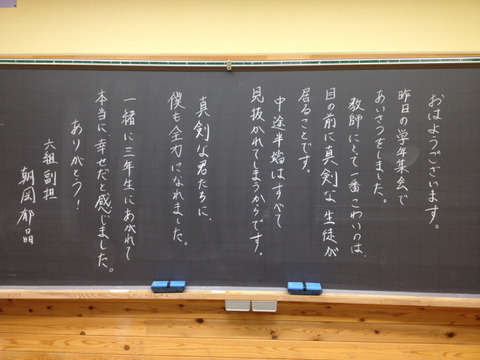 おはようございます。
昨日の学年集会で
あいさつをしました。
教師にとって一番こわいのは、
目の前に真剣な生徒が
居ることです。
中途半端はすべて
見抜かれてしまうからです。
真剣な君たちに、
僕も全力になれました。
一緒に三年生にあがれて
本当に幸せだと感じました。
ありがとう!
六組副担
朝岡都晶